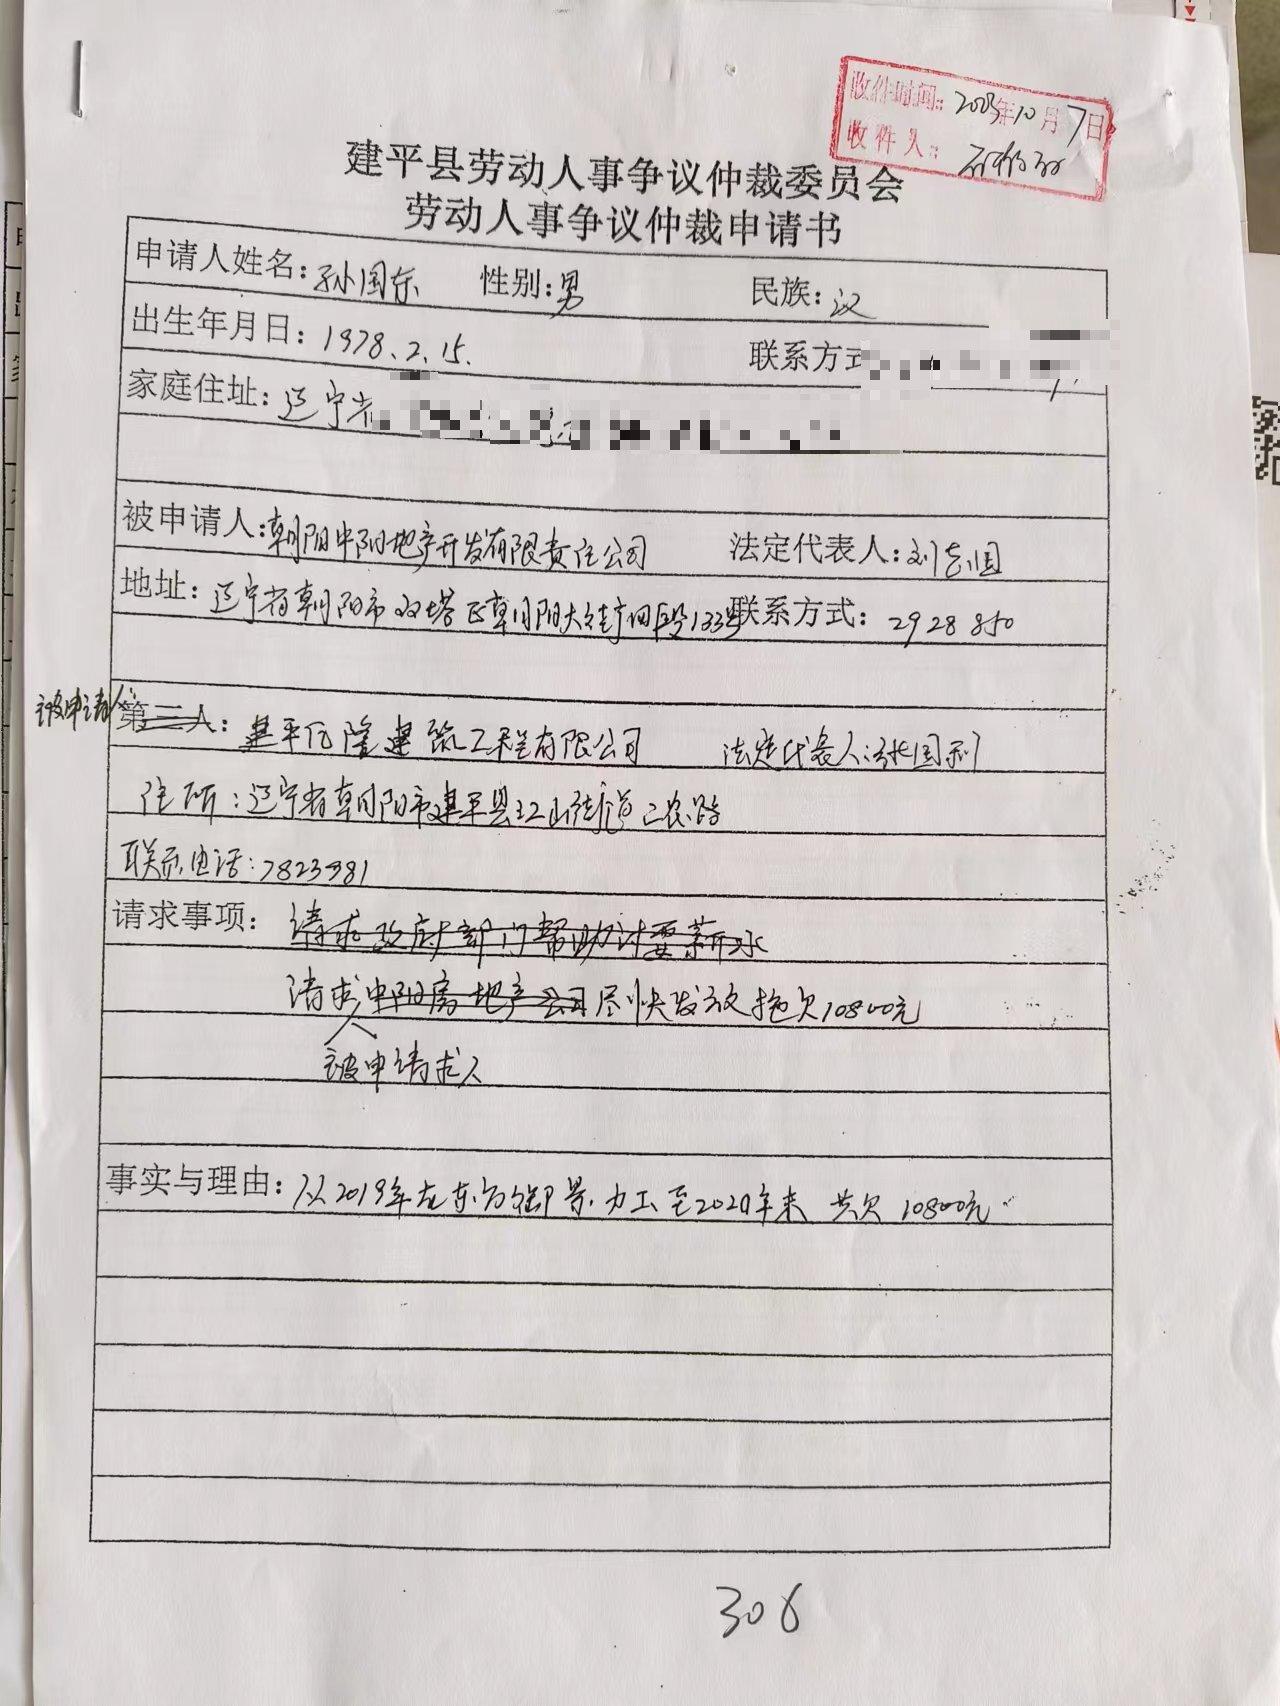 收件时间: 2023年10月7日
收件人:
建平县劳动人事争议仲裁委员会
劳动人事争议仲裁申请书
申请人姓名: 孙国东 性别: 男 民族: 汉
出生年月日: 1978.2.15. 联系方式
家庭住址: 辽宁省
被申请人: 朝阳中阳地产开发有限责任公司 法定代表人: 刘志国
地址: 辽宁省朝阳市双塔区朝阳大街四段133号 联系方式: 2928850
被申请人 第三人: 建平 隆建筑工程有限公司 法定代表人: 张国利
住所: 辽宁省朝阳市建平县红山街道 路
联系电话: 7823381
请求事项: 请求政府部门帮助讨要薪水
请求中阳房地产公司尽快发放拖欠10800元
被申请求人
事实与理由: 从2019年在东方御景力工至2020年末 共欠10800元
306